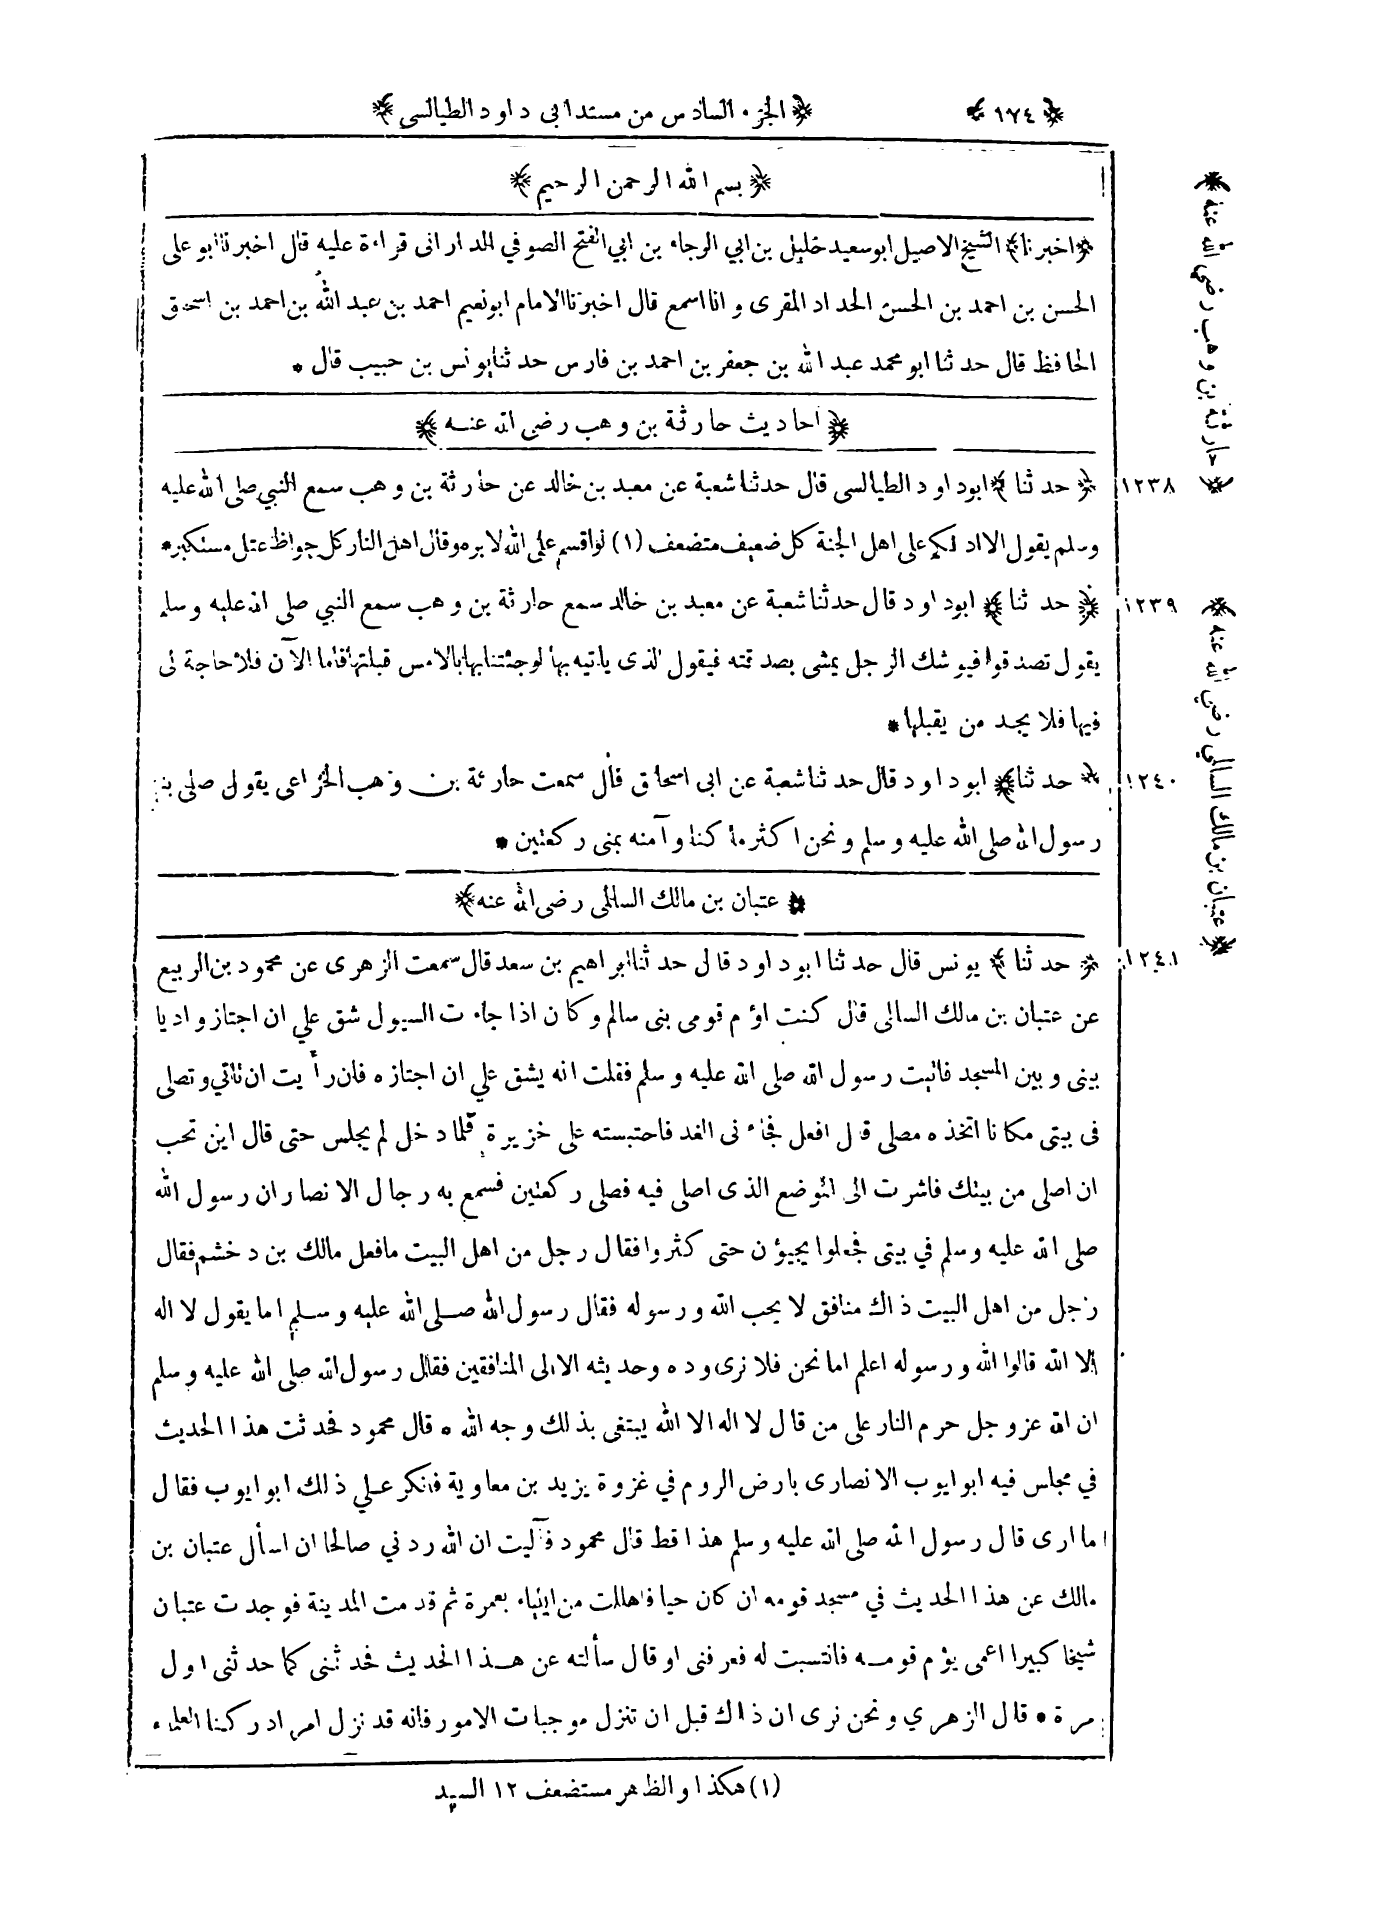 ﴿١٧٤﴾ ﴿الجزء السادس من مسند ابى داود الطيالسي﴾
﴿بسم الله الرحمن الرحيم﴾
﴿اخبرنا﴾ الشيخ الاصيل ابو سعيد خليل بن ابي الرجاء بن ابي الفتح الصوفي الداراني قراءة عليه قال اخبرنا ابو على
الحسن بن احمد بن الحسن الحداد المقرى و انا اسمع قال اخبرنا الامام ابو نعيم احمد بن عبد الله بن احمد بن اسحق
الحافظ قال حدثنا ابو محمد عبد الله بن جعفر بن احمد بن فارس حدثنا يونس بن حبيب قال *
﴿احاديث حارثة بن وهب رضى الله عنه﴾
١٢٣٨ ﴿حدثنا﴾ ابو داود الطيالسى قال حدثنا شعبة عن معبد بن خالد عن حارثة بن وهب سمع النبي صلى الله عليه
وسلم يقول الا ادلكم على اهل الجنة كل ضعيف متضعف (١) لو اقسم على الله لابره وقال اهل النار كل جواظ عتل مستكبر *
١٢٣٩ ﴿حدثنا﴾ ابو داود قال حدثنا شعبة عن معبد بن خالد سمع حارثة بن وهب سمع النبي صلى الله عليه وسلم
يقول تصدقوا فيوشك الرجل يمشى بصدقته فيقول الذى ياتيه بها لو جئتنا بها بالامس قبلتها فاما الآن فلا حاجة لى
فيها فلا يجد من يقبلها *
١٢٤٠ ﴿حدثنا﴾ ابو داود قال حدثنا شعبة عن ابى اسحاق قال سمعت حارثة بن وهب الخزاعى يقول صلى بنا
رسول الله صلى الله عليه وسلم ونحن اكثر ما كنا وآمنه بمنى ركعتين *
﴿عتبان بن مالك السالمى رضى الله عنه﴾
١٢٤١ ﴿حدثنا﴾ يونس قال حدثنا ابو داود قال حدثنا ابراهيم بن سعد قال سمعت الزهرى عن محمود بن الربيع
عن عتبان بن مالك السالمى قال كنت اؤم قومى بنى سالم وكان اذا جاءت السيول شق علي ان اجتاز واديا
بينى وبين المسجد فاتيت رسول الله صلى الله عليه وسلم فقلت انه يشق علي ان اجتازه فان رأيت ان تاتي وتصلى
فى بيتى مكانا اتخذه مصلى قال افعل فجاءنى الغد فاحتبسته على خزيرة فلما دخل لم يجلس حتى قال اين تحب
ان اصلى من بيتك فاشرت الى الموضع الذى اصلى فيه فصلى ركعتين فسمع به رجال الانصار ان رسول الله
صلى الله عليه وسلم في بيتى فجعلوا يجيؤن حتى كثروا فقال رجل من اهل البيت ما فعل مالك بن دخشم فقال
رجل من اهل البيت ذاك منافق لا يحب الله ورسوله فقال رسول الله صلى الله عليه وسلم اما يقول لا اله
الا الله قالوا الله ورسوله اعلم اما نحن فلا نرى وده وحديثه الا الى المنافقين فقال رسول الله صلى الله عليه وسلم
ان الله عزوجل حرم النار على من قال لا اله الا الله يبتغى بذلك وجه الله ه قال محمود فحدثت هذا الحديث
في مجلس فيه ابو ايوب الانصارى بارض الروم في غزوة يزيد بن معاوية فانكر علي ذلك ابو ايوب فقال
ما ارى قال رسول الله صلى الله عليه وسلم هذا قط قال محمود فآليت ان الله ردني صالحا ان اسأل عتبان بن
مالك عن هذا الحديث في مسجد قومه ان كان حيا فاهللت من ايلياء بعمرة ثم قدمت المدينة فوجدت عتبان
شيخا كبيرا اعمى يؤم قومه فانتسبت له فعرفنى او قال سألته عن هذا الحديث فحدثنى كما حدثنى اول
مرة * قال الزهري ونحن نرى ان ذاك قبل ان تنزل موجبات الامور فانه قد نزل امر ادركنا العلماء
(١) هكذا والظاهر مستضعف ١٢ السيد
﴿حارثة بن وهب رضي الله عنه﴾
﴿عتبان بن مالك السالمي رضي الله عنه﴾